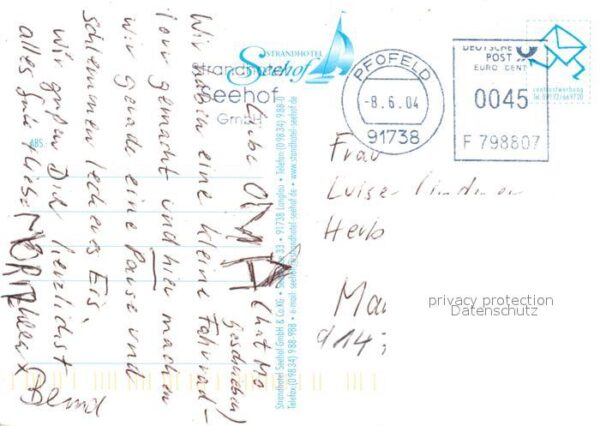 STRANDHOTEL
Seehof
Strandhotel
Seehof
GmbH
ABS.:
Liebe OMA
(hat Mo
geschrieben)
Wir haben eine kleine Fahrrad-
tour gemacht und hier machen
wir gerade eine Pause und
schlemmen leckeres Eis.
Wir grüßen Dich herzlichst
alles Gute + Liebe
MORITZ
Bernd
Strandhotel Seehof GmbH & Co. KG • Seestraße 33 • 91738 Langlau • Telefon (0 98 34) 9 88-0
Telefax (0 98 34) 9 88-988 • e-mail: seehof@strandhotel-seehof.de • www.strandhotel-seehof.de
PFOFELD
-8.6.04
91738
DEUTSCHE
POST
EURO CENT
0045
F 798807
Frau
Luise Lindner
Mar
914
privacy protection
Datenschutz